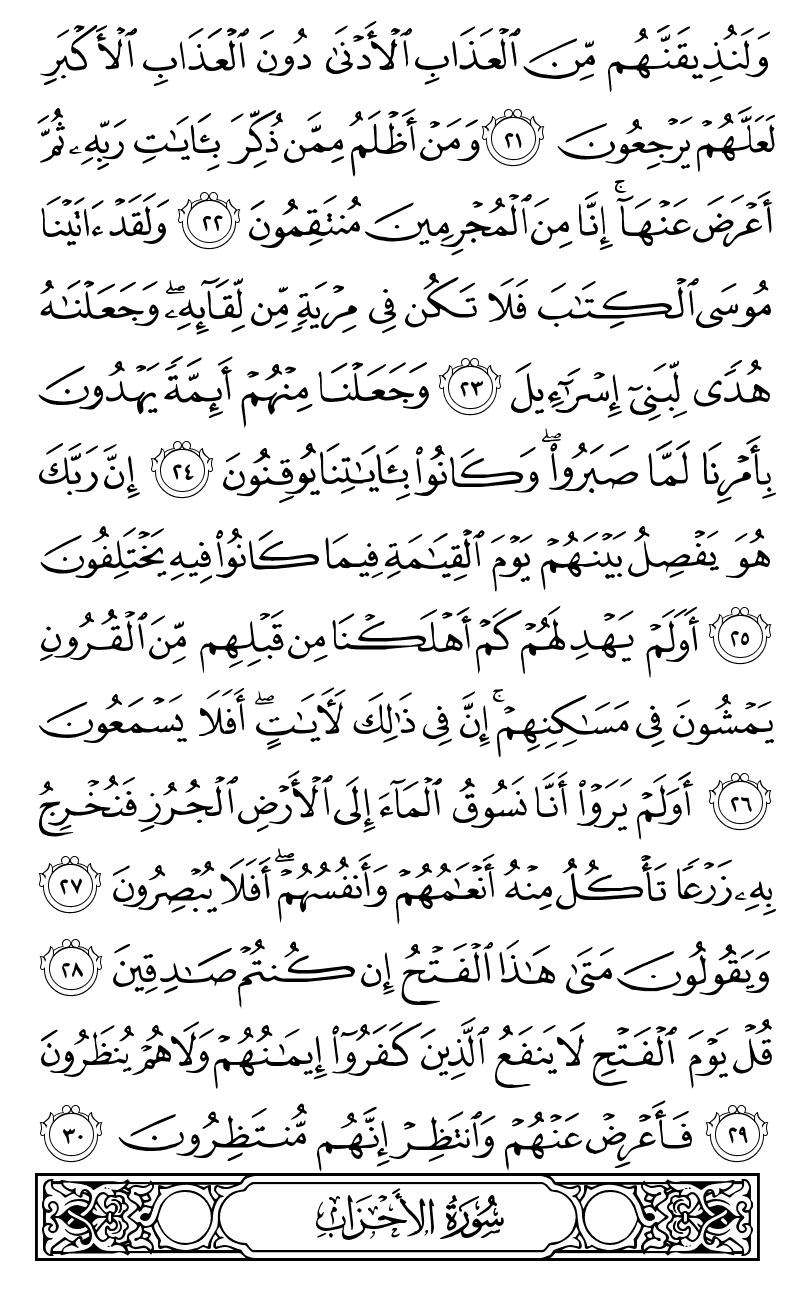 وَلَنُذِيقَنَّهُم مِّنَ ٱلْعَذَابِ ٱلْأَدْنَىٰ دُونَ ٱلْعَذَابِ ٱلْأَكْبَرِ
لَعَلَّهُمْ يَرْجِعُونَ ٢١ وَمَنْ أَظْلَمُ مِمَّن ذُكِّرَ بِـَٔايَـٰتِ رَبِّهِۦ ثُمَّ
أَعْرَضَ عَنْهَآ ۚ إِنَّا مِنَ ٱلْمُجْرِمِينَ مُنتَقِمُونَ ٢٢ وَلَقَدْ ءَاتَيْنَا
مُوسَى ٱلْكِتَـٰبَ فَلَا تَكُن فِى مِرْيَةٍ مِّن لِّقَآئِهِۦ ۖ وَجَعَلْنَـٰهُ
هُدًى لِّبَنِىٓ إِسْرَٰٓءِيلَ ٢٣ وَجَعَلْنَا مِنْهُمْ أَئِمَّةً يَهْدُونَ
بِأَمْرِنَا لَمَّا صَبَرُوا۟ ۖ وَكَانُوا۟ بِـَٔايَـٰتِنَا يُوقِنُونَ ٢٤ إِنَّ رَبَّكَ
هُوَ يَفْصِلُ بَيْنَهُمْ يَوْمَ ٱلْقِيَـٰمَةِ فِيمَا كَانُوا۟ فِيهِ يَخْتَلِفُونَ
٢٥ أَوَلَمْ يَهْدِ لَهُمْ كَمْ أَهْلَكْنَا مِن قَبْلِهِم مِّنَ ٱلْقُرُونِ
يَمْشُونَ فِى مَسَـٰكِنِهِمْ ۚ إِنَّ فِى ذَٰلِكَ لَـَٔايَـٰتٍ ۖ أَفَلَا يَسْمَعُونَ
٢٦ أَوَلَمْ يَرَوْا۟ أَنَّا نَسُوقُ ٱلْمَآءَ إِلَى ٱلْأَرْضِ ٱلْجُرُزِ فَنُخْرِجُ
بِهِۦ زَرْعًا تَأْكُلُ مِنْهُ أَنْعَـٰمُهُمْ وَأَنفُسُهُمْ ۖ أَفَلَا يُبْصِرُونَ ٢٧
وَيَقُولُونَ مَتَىٰ هَـٰذَا ٱلْفَتْحُ إِن كُنتُمْ صَـٰدِقِينَ ٢٨
قُلْ يَوْمَ ٱلْفَتْحِ لَا يَنفَعُ ٱلَّذِينَ كَفَرُوٓا۟ إِيمَـٰنُهُمْ وَلَا هُمْ يُنظَرُونَ
٢٩ فَأَعْرِضْ عَنْهُمْ وَٱنتَظِرْ إِنَّهُم مُّنتَظِرُونَ ٣٠
سُورَةُ الأَحْزَابِ